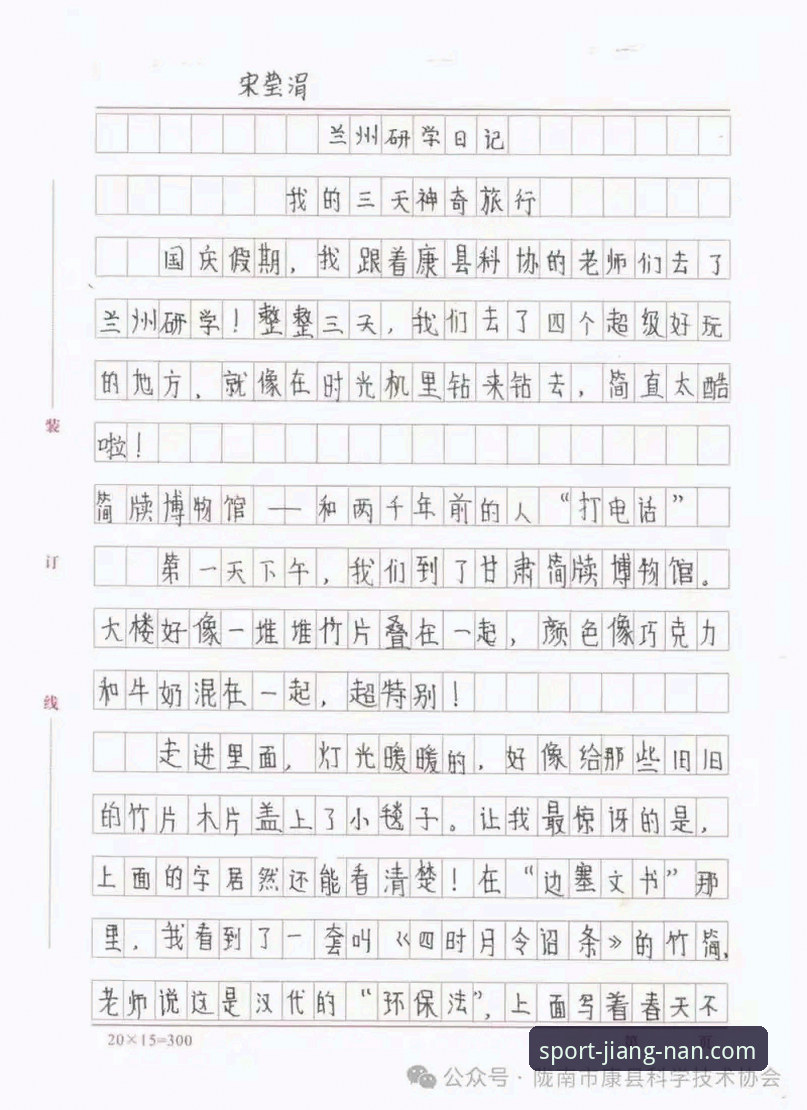 宋莹涓
兰州研学日记
我的三天神奇旅行
国庆假期，我跟着康县科协的老师们去了
兰州研学！整整三天，我们去了四个超级好玩
的地方，就像在时光机里钻来钻去，简直太酷
啦！
简牍博物馆——和两千年前的人“打电话”
第一天下午，我们到了甘肃简牍博物馆。
大楼好像一堆堆竹片叠在一起，颜色像巧克力
和牛奶混在一起，超特别！
走进里面，灯光暖暖的，好像给那些旧旧
的竹片木片盖上了小毯子。让我最惊讶的是，
上面的字居然还能看清楚！在“边塞文书”那
里，我看到了一套叫《四时月令诏条》的竹简，
老师说这是汉代的“环保法”，上面写着春天不
装
订
线
20×15=300
sport-jiang-nan.com
公众号·陇南市康县科学技术协会